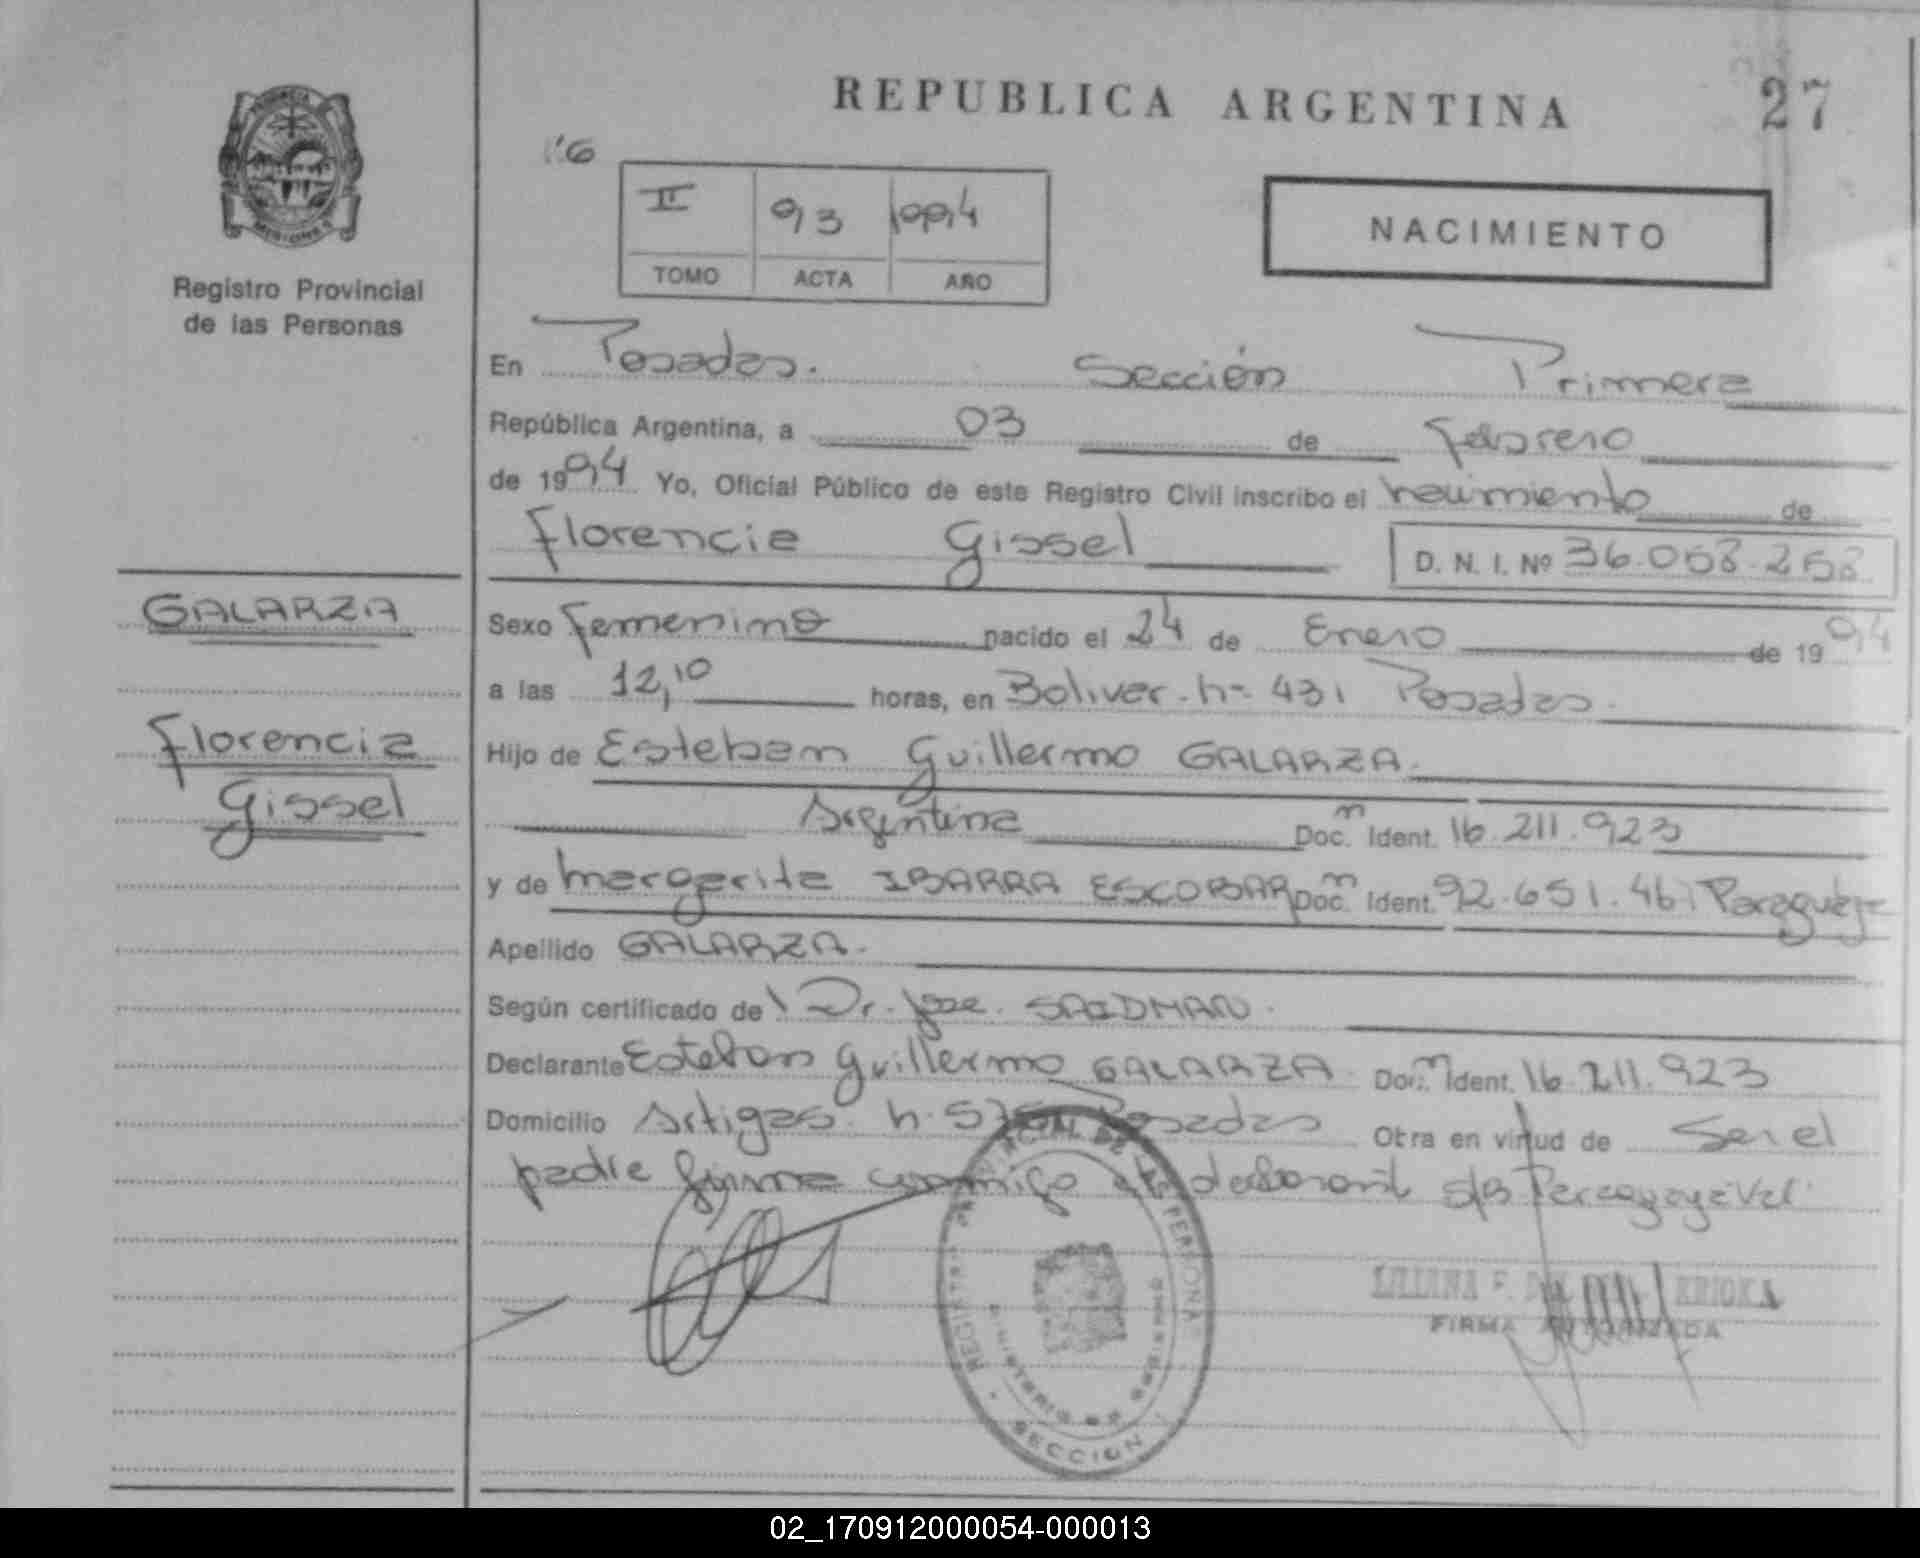 REPUBLICA ARGENTINA
27
II 93 1994
TOMO ACTA AÑO
NACIMIENTO
Registro Provincial
de las Personas
En Posadas. Sección Primera
República Argentina, a 03 de Febrero
de 1994 Yo, Oficial Público de este Registro Civil inscribo el nacimiento de
Florencia Gissel D. N. I. Nº 36.058.258
GALARZA
Sexo Femenino nacido el 24 de Enero de 1994
a las 12,10 horas, en Bolivar nº 431 Posadas.
Florencia
Gissel
Hijo de Esteban Guillermo GALARZA.
Argentina Doc. Ident. 16.211.923
y de Margarita IBARRA ESCOBAR Doc. Ident. 92.651.461 Paraguaya
Apellido GALARZA.
Según certificado de Dr. Jose SAIDMAN.
Declarante Esteban Guillermo GALARZA Doc. Ident. 16.211.923
Domicilio Artigas n. Posadas Otra en virtud de Ser el
padre firma conmigo
REGISTRO PROVINCIAL DE LAS PERSONAS
MINISTERIO DE GOBIERNO
SECCION
LILIANA F.
FIRMA AUTORIZADA
02_170912000054-000013